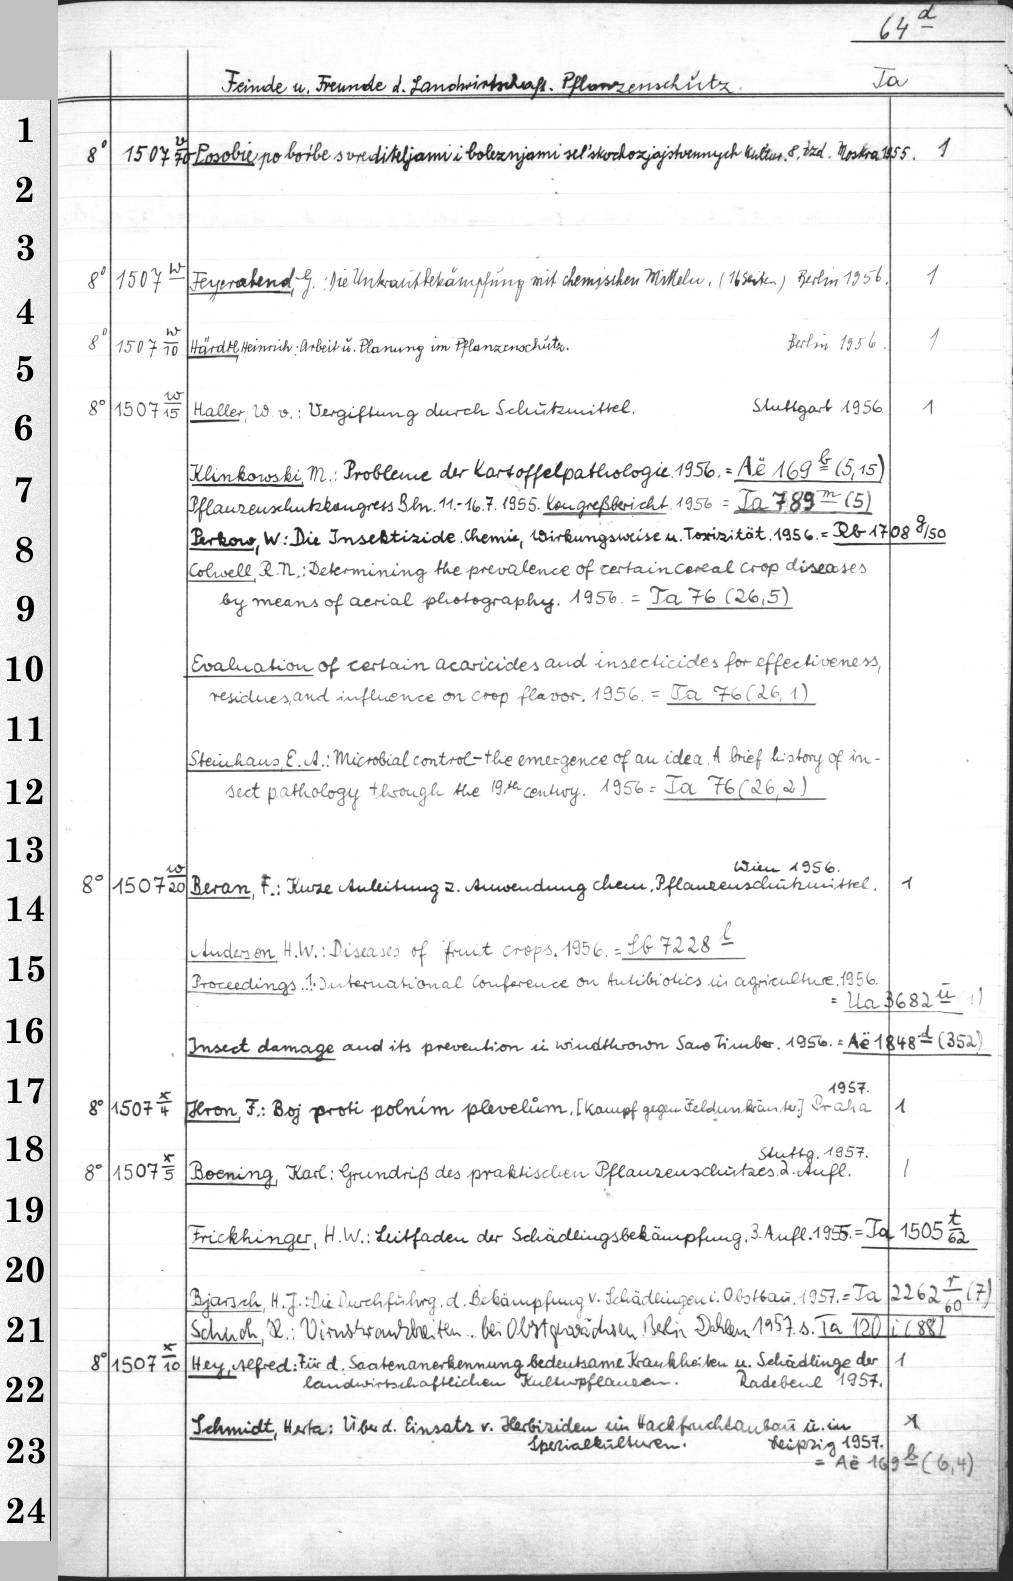 64 d
Feinde u. Freunde d. Landwirtschaft. Pflanzenschutz. Ta
1
8° 1507 v/70 Posobie po bor'be s vrediteljami i boleznjami sel'skochozjajstvennych kultur. 8. izd. Moskva 1955. 1
2
3
8° 1507 w Feyerabend, G.: Die Unkrautbekämpfung mit chemischen Mitteln. (16 Seiten) Berlin 1956. 1
4
8° 1507 w/10 Härdtl, Heinrich: Arbeit u. Planung im Pflanzenschutz. Berlin 1956. 1
5
8° 1507 w/15 Haller, W. v.: Vergiftung durch Schutzmittel. Stuttgart 1956 1
6
Klinkowski, M.: Probleme der Kartoffelpathologie. 1956. = Aë 169 b (5,15)
7
Pflanzenschutzkongress Bln. 11.-16.7.1955. Kongreßbericht. 1956 = Ta 789 m (5)
Perkow, W: Die Insektizide. Chemie, Wirkungsweise u. Toxizität. 1956. = Rb 1708 g/50
8
Colwell, R.N.: Determining the prevalence of certain cereal crop diseases
by means of aerial photography. 1956. = Ta 76 (26,5)
9
10
Evaluation of certain acaricides and insecticides for effectiveness,
residues, and influence on crop flavor. 1956. = Ta 76 (26,1)
11
Steinhaus, E.A.: Microbial control - the emergence of an idea. A brief history of in-
12
sect pathology through the 19.th century. 1956 = Ta 76 (26,2)
13
Wien 1956.
8° 1507 w/20 Beran, F.: Kurze Anleitung z. Anwendung chem. Pflanzenschutzmittel. 1
14
Anderson, H.W.: Diseases of fruit crops. 1956. = Sb 7228 l
15
Proceedings. 1. International Conference on Antibiotics in agriculture. 1956.
= Ua 3682 ü
16
Insect damage and its prevention in windthrown Saw Timber. 1956. = Aë 1848 d (352)
17
1957.
8° 1507 x/4 Hron, F.: Boj proti polním plevelům. [Kampf gegen Feldunkräuter.] Praha 1
18
Stuttg. 1957.
8° 1507 x/5 Boening, Karl: Grundriß des praktischen Pflanzenschutzes. 2. Aufl. 1
19
Frickhinger, H.W.: Leitfaden der Schädlingsbekämpfung. 3. Aufl. 1955. = Ta 1505 t/62
20
Bjarsch, H.J.: Die Durchführg. d. Bekämpfung v. Schädlingen i. Obstbau. 1957. = Ta 2262 r/60 (7)
21
Schuch, K.: Viruskrankheiten .. bei Obstgewächsen. Berlin Dahlem 1957. s. Ta 120 i (88)
8° 1507 x/10 Hey, Alfred: Für d. Saatenanerkennung bedeutsame Krankheiten u. Schädlinge der 1
22
landwirtschaftlichen Kulturpflanzen. Radebeul 1957.
Schmidt, Herta: Über d. Einsatz v. Herbiziden im Hackfruchtanbau u. in
23
Spezialkulturen. Leipzig 1957.
= Aë 169 b (6,4)
24